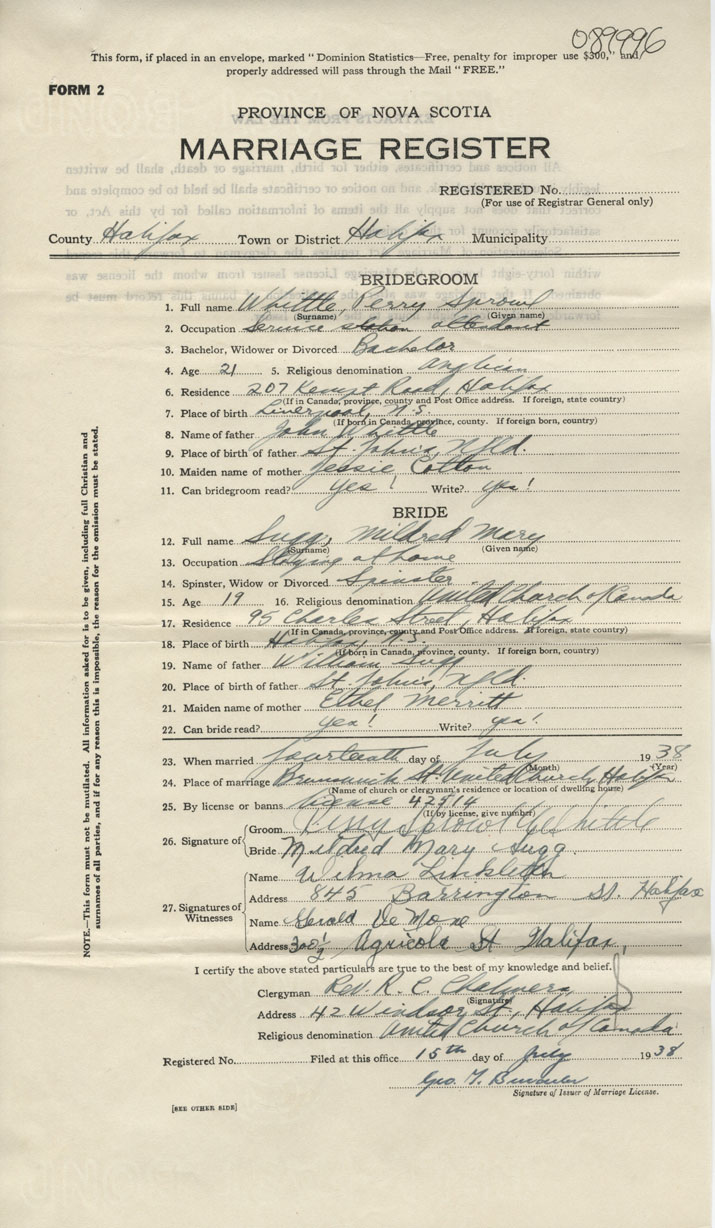 089996
This form, if placed in an envelope, marked "Dominion Statistics—Free, penalty for improper use $300," and
properly addressed will pass through the Mail "FREE."
FORM 2
PROVINCE OF NOVA SCOTIA
MARRIAGE REGISTER
REGISTERED No.
(For use of Registrar General only)
County Halifax Town or District Halifax Municipality
BRIDEGROOM
1. Full name Whittle, Perry Sprowl
(Surname) (Given name)
2. Occupation Service station attendant
3. Bachelor, Widower or Divorced Bachelor
4. Age 21 5. Religious denomination Anglican
6. Residence 207 Kempt Road, Halifax
(If in Canada, province, county and Post Office address. If foreign, state country)
7. Place of birth Liverpool, N.S.
(If born in Canada, province, county. If foreign born, country)
8. Name of father John Whittle
9. Place of father St. John's, Nfld.
10. Maiden name of mother Jessie Cotton
11. Can bridegroom read? Yes! Write? yes!
BRIDE
12. Full name Sugg, Mildred Mary
(Surname) (Given name)
13. Occupation Staying at home
14. Spinster, Widow or Divorced Spinster
15. Age 19 16. Religious denomination United Church of Canada
17. Residence 95 Charles Street, Halifax
(If in Canada, province, county and Post Office address. If foreign, state country)
18. Place of birth Halifax N.S.
(If born in Canada, province, county. If foreign born, country)
19. Name of father William Sugg
20. Place of birth of father St. John's, Nfld.
21. Maiden name of mother Ethel Merritt
22. Can bride read? yes! Write? yes!
23. When married fourteenth day of July 1938
(Month) (Year)
24. Place of marriage Brunswick St. United Church, Halifax
(Name of church or clergyman's residence or location of dwelling house)
25. By license or banns license 42514
(If by license, give number)
26. Signature of
Groom Perry Sprowl Whittle
Bride Mildred Mary Sugg
27. Signatures of Witnesses
Name Wilma Linkletter
Address 845 Barrington St. Halifax
Name Gerald DeMone
Address 300½ Agricola St Halifax,
I certify the above stated particulars are true to the best of my knowledge and belief.
Clergyman Rev. R. C. Chalmers
(Signature)
Address 42 Windsor St, Halifax
Religious denomination United Church of Canada
Registered No. Filed at this office 15th day of July 1938
Geo. T.
Signature of Issuer of Marriage License.
[SEE OTHER SIDE]
NOTE.—This form must not be mutilated. All information asked for is to be given, including full Christian and
surnames of all parties, and if for any reason this is impossible, the reason for the emission must be stated.